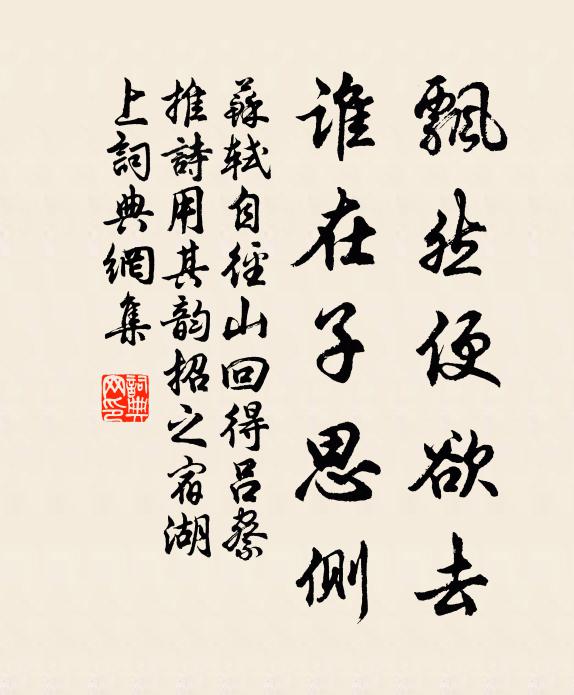 飄然便欲去
誰在子思側
蘇軾自徑山回得呂察
推詩用其韵招之宿湖
上詞典網集
詞典
网印